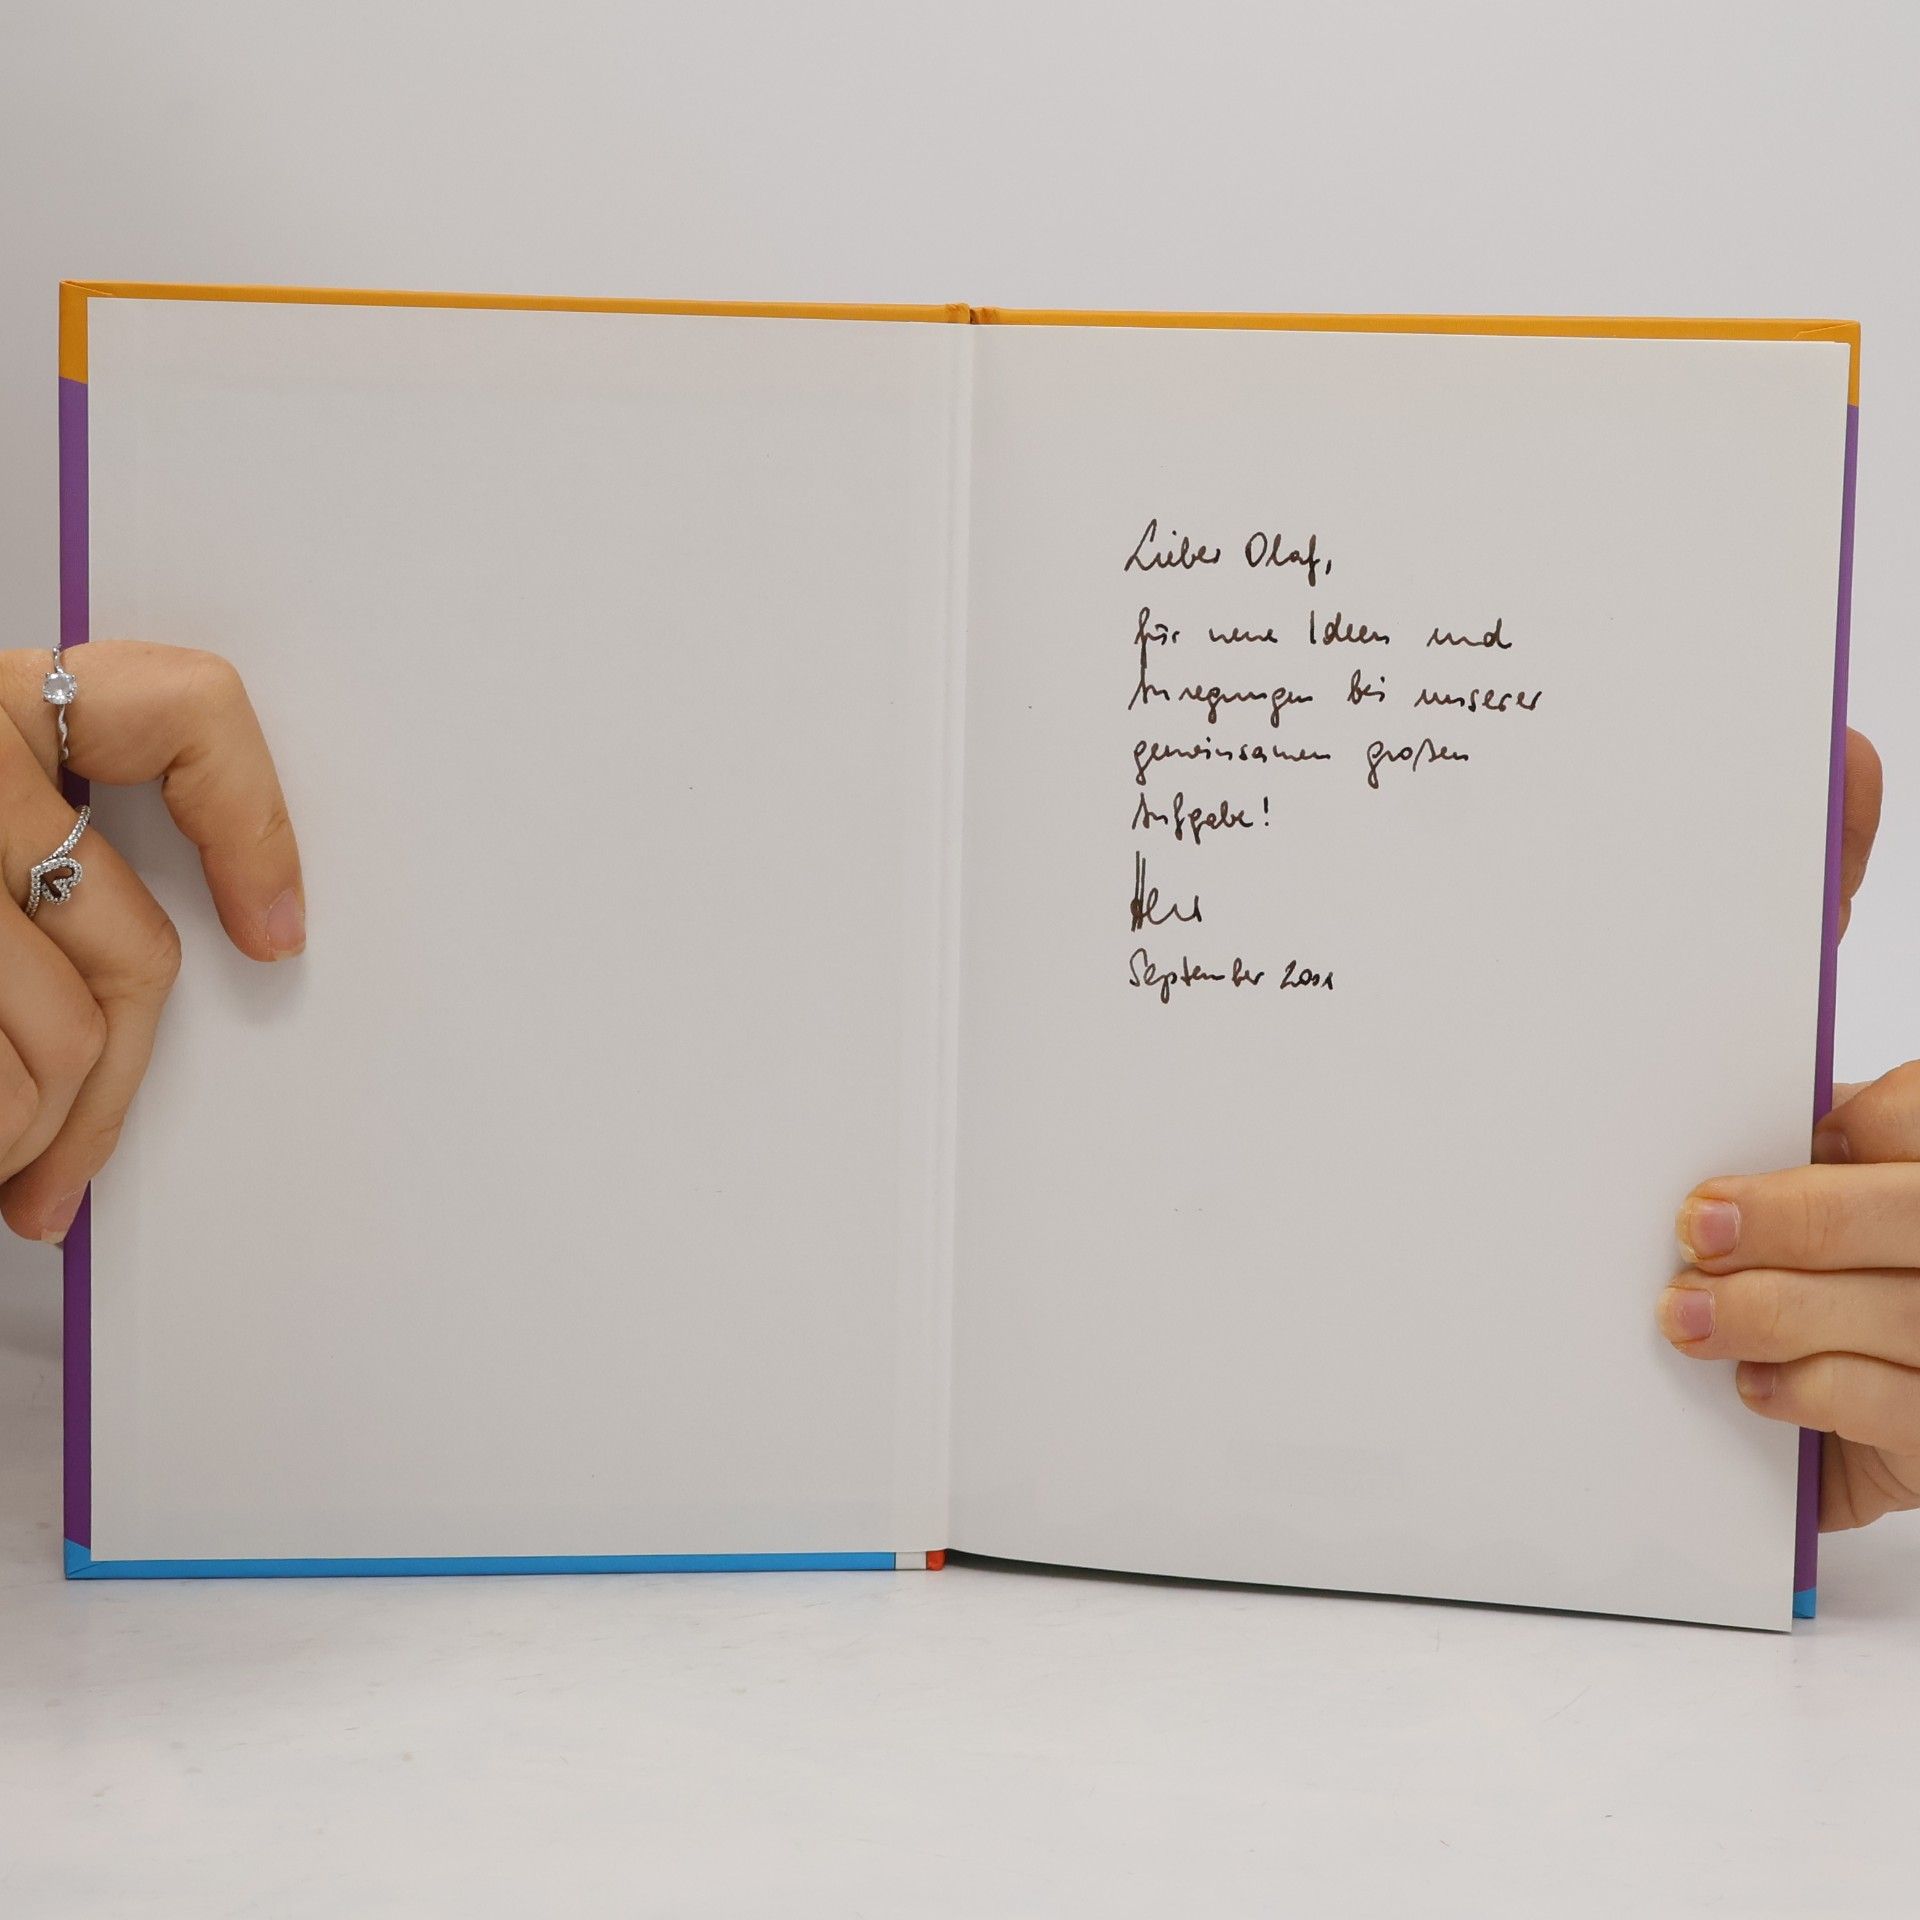 Lieber Olaf,
für neue Ideen und
Anregungen bei unserer
gemeinsamen großen
Aufgabe!
September 2001